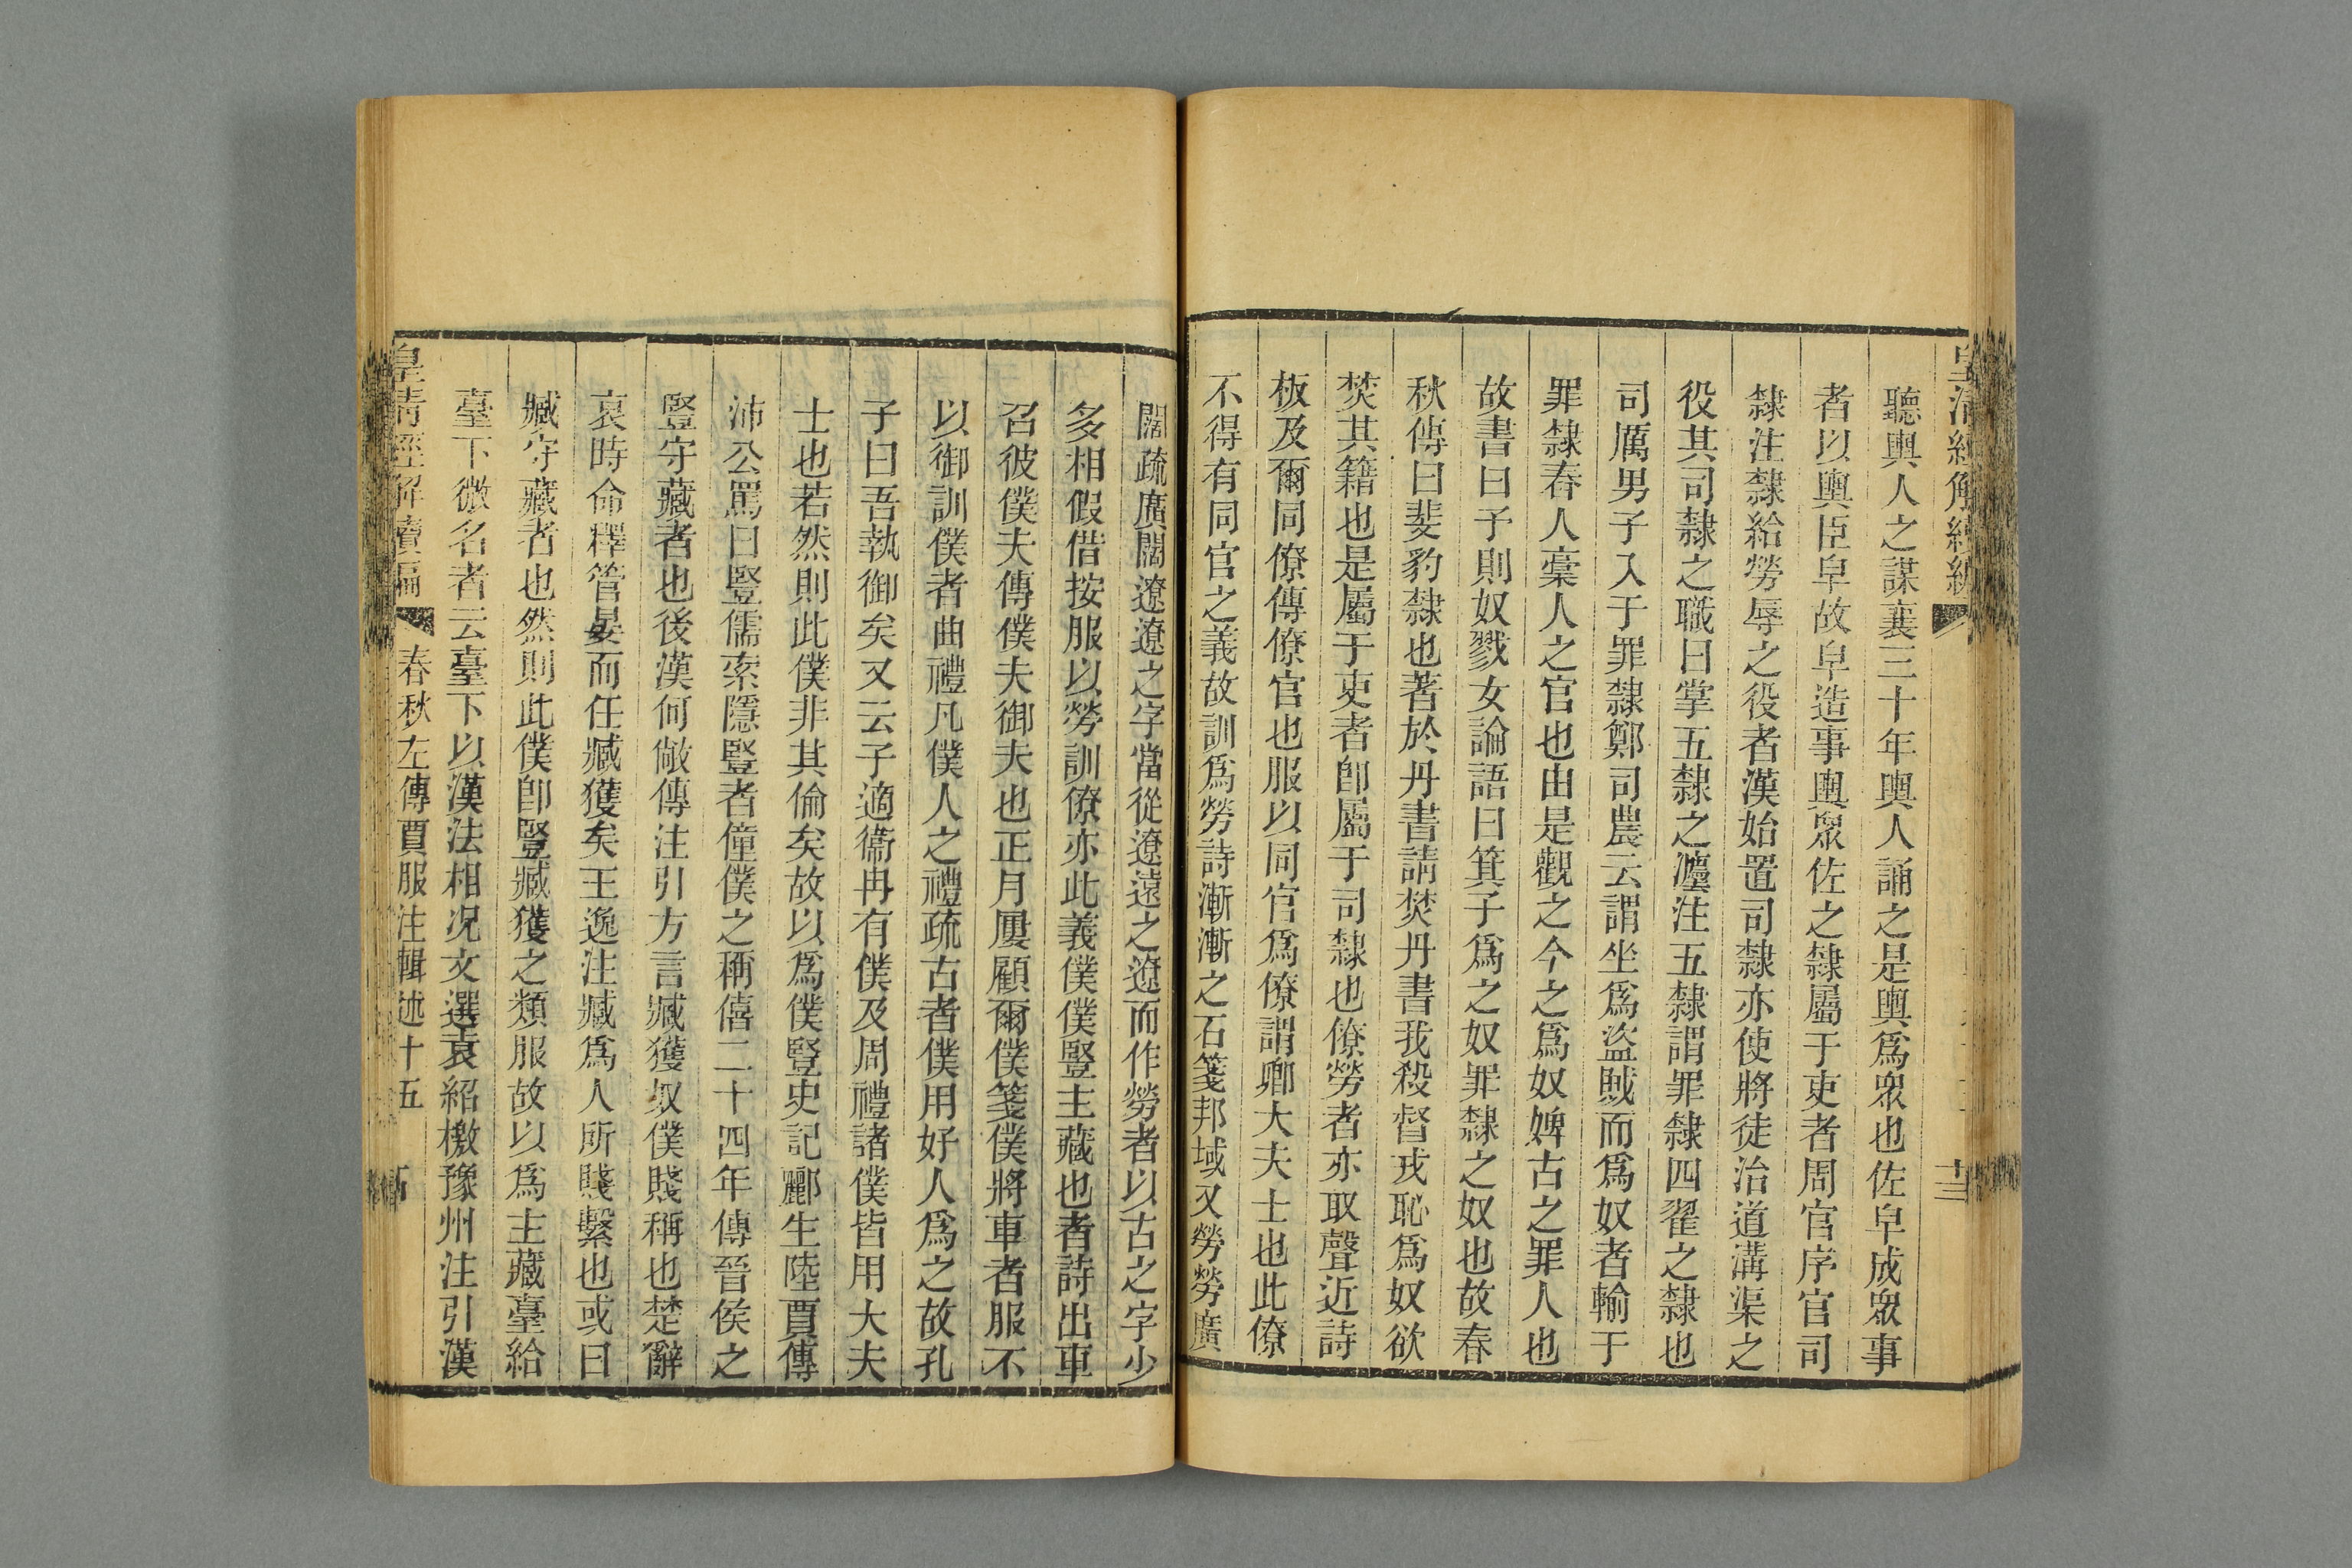 皇清經解續編
十三
聽輿人之謀襄三十年輿人誦之是輿爲衆也佐皁成衆事
者以輿臣皁故皁造事輿衆佐之隸屬于吏者周官序官司
隸注隸給勞辱之役者漢始置司隸亦使將徒治道溝渠之
役其司隸之職曰掌五隸之灋注五隸謂罪隸四翟之隸也
司厲男子入于罪隸鄭司農云謂坐爲盜賊而爲奴者輸于
罪隸舂人槀人之官也由是觀之今之爲奴婢古之罪人也
故書曰予則奴戮女論語曰箕子爲之奴罪隸之奴也故春
秋傳曰斐豹隸也著於丹書請焚丹書我殺督戎恥爲奴欲
焚其籍也是屬于吏者卽屬于司隸也僚勞者亦取聲近詩
板及爾同僚傳僚官也服以同官爲僚謂卿大夫士也此僚
不得有同官之義故訓爲勞詩漸漸之石箋邦域又勞勞廣
闊疏廣闊遼遼之字當從遼遠之遼而作勞者以古之字少
多相假借按服以勞訓僚亦此義僕僕豎主藏也者詩出車
召彼僕夫傳僕夫御夫也正月屢顧爾僕箋僕將車者服不
以御訓僕者曲禮凡僕人之禮疏古者僕用好人爲之故孔
子曰吾執御矣又云子適衞冉有僕及周禮諸僕皆用大夫
士也若然則此僕非其倫矣故以爲僕豎史記酈生陸賈傳
沛公罵曰豎儒索隱豎者僮僕之稱僖二十四年傳晉侯之
豎守藏者也後漢何敞傳注引方言臧獲奴僕賤稱也楚辭
哀時命釋管晏而任臧獲矣王逸注臧爲人所賤繫也或曰
臧守藏者也然則此僕卽豎臧獲之類服故以爲主藏臺給
臺下微名者云臺下以漢法相况文選袁紹檄豫州注引漢
皇清經解續編
春秋左傳賈服注輯述十五